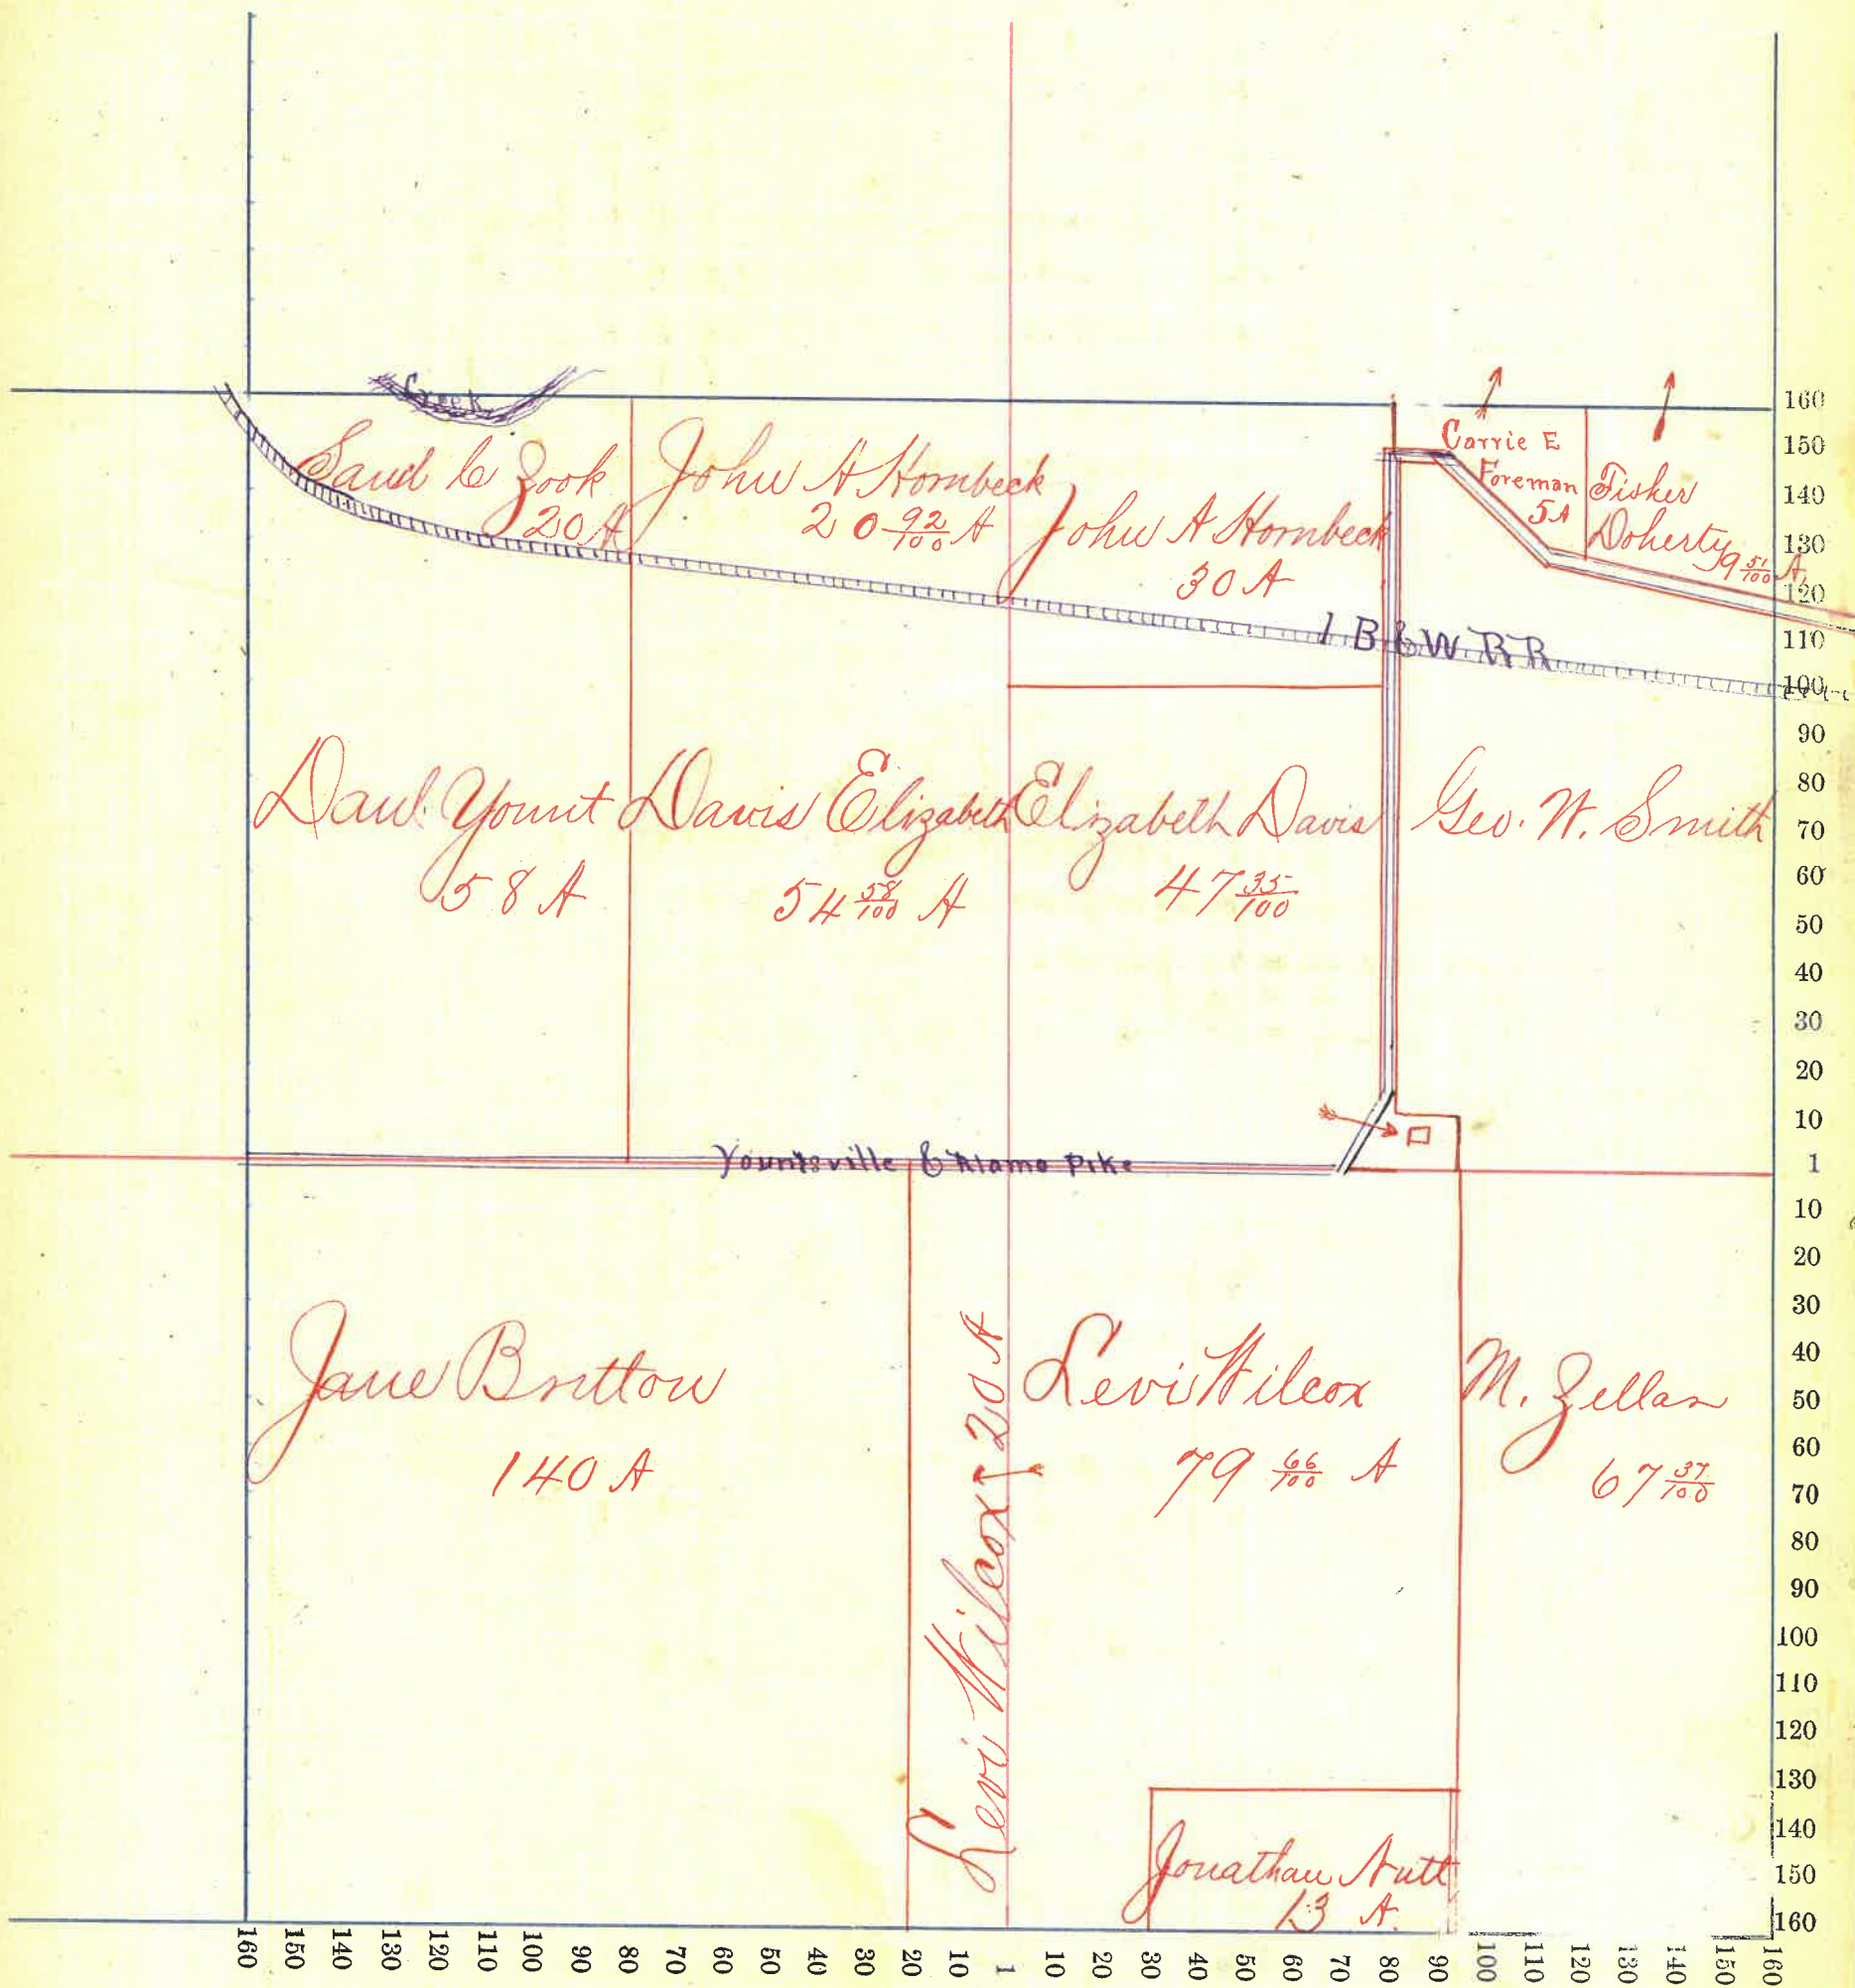 Creek
Saml C Zook
20 A
John A Hornbeck
20 92/100 A
John A Hornbeck
30 A
Carrie E
Foreman
5 A
Fisher
Doherty
9 51/100 A.
I B & W. R R
Danl. Yount
58 A
Davis Elizabeth
54 58/100 A
Elizabeth Davis
47 35/100
Geo. W. Smith
Yountsville & Alamo Pike
Jane Britton
140 A
Levi Wilcox 20 A
Levi Wilcox
79 66/100 A
M. Zellar
67 37/100
Jonathan Nutt
13 A.
160
150
140
130
120
110
100
90
80
70
60
50
40
30
20
10
1
10
20
30
40
50
60
70
80
90
100
110
120
130
140
150
160
160 150 140 130 120 110 100 90 80 70 60 50 40 30 20 10 1 10 20 30 40 50 60 70 80 90 100 110 120 130 140 150 160